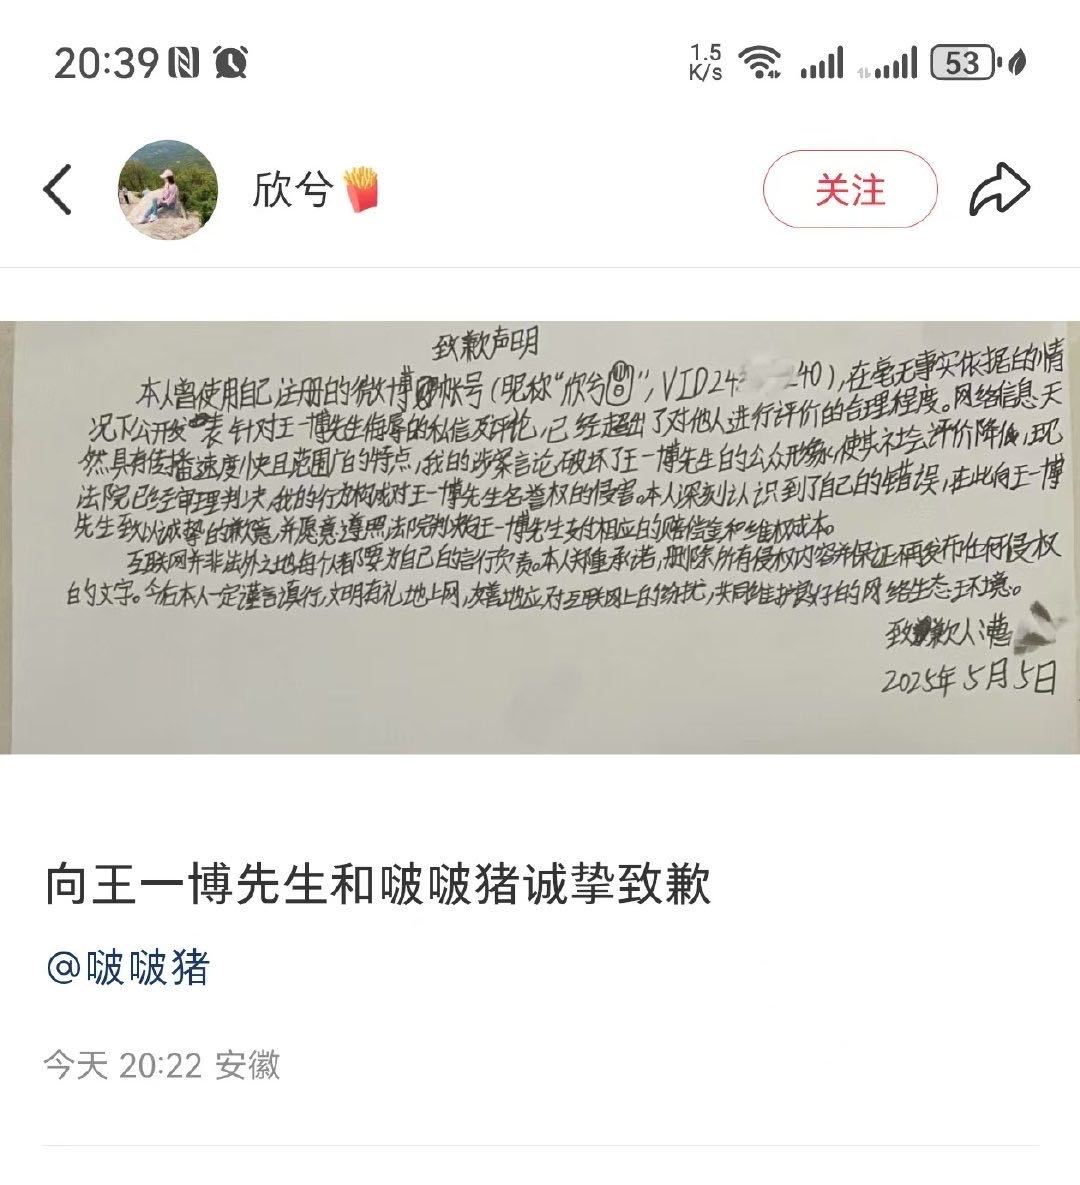 20:39
1.5
K/s
53
欣兮
关注
致歉声明
本人曾使用自己注册的微博帐号(昵称"欣兮",VID24 240),在毫无事实依据的情
况下公开发表针对王一博先生侮辱的私信及评论,已经超出了对他人进行评价的合理程度。网络信息天
然具有传播速度快且范围广的特点,我的涉案言论,破坏了王一博先生的公众形象,使其社会评价降低,现
法院已经审理判决,我的行为构成对王一博先生名誉权的侵害。本人深刻认识到了自己的错误,在此向王一博
先生致以诚挚的歉意,并愿意遵照法院判决向王一博先生支付相应的赔偿金和维权成本。
互联网并非法外之地每个人都要为自己的言行负责。本人郑重承诺,删除所有侵权内容并保证不再发布任何侵权
的文字。今后本人一定谨言慎行,文明有礼地上网,友善地应对互联网上的纷扰,共同维护良好的网络生态环境。
致歉人
2025年5月5日
向王一博先生和啵啵猪诚挚致歉
@啵啵猪
今天 20:22 安徽